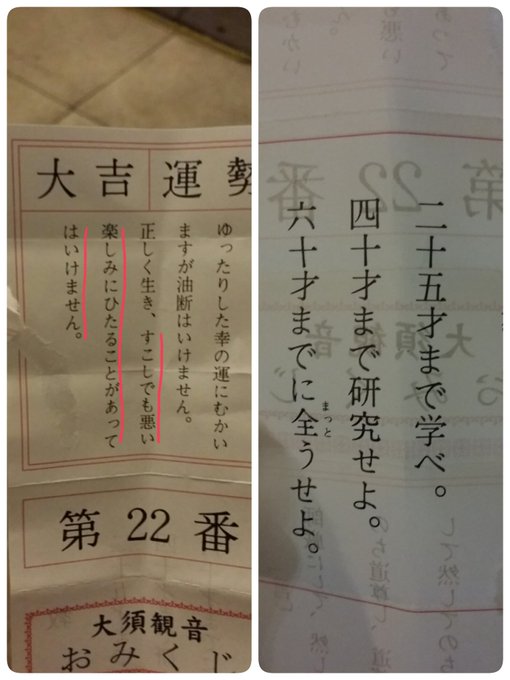 大吉 運勢
ゆったりした幸の運にむかい
ますが油断はいけません。
正しく生き、すこしでも悪い
楽しみにひたることがあって
はいけません。
第22番
大須観音
おみくじ
二十五才まで学べ。
四十才まで研究せよ。
六十才までに全うせよ。
まっと